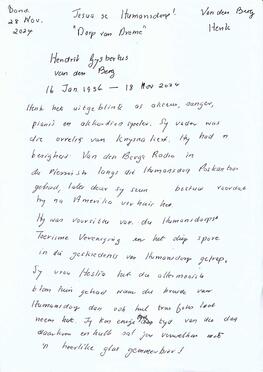 Dond. Jesua se Humansdorp! Van den Berg
28 Nov.
2024 "Dorp van Drome" Henk
Hendrik Gysbertus
van den Berg
16 Jan 1936 — 18 Nov 2024
Henk het uitgeblink as akteur, sanger,
pianis en akkordeon speler. Sy vader was
die orrelis van Knysna kerk. Hy had 'n
besigheid Van den Bergs Radio in
du langs die Humansdorp Poskantoor
gehad, later deur sy seun bestuur voordat
hy na Amerika verhuis het.
Hy was voorsitter van die Humansdorpse
Toerisme Vereniging en het diep spore
in die geskiedenis van Humansdorp getrap.
Sy vrou het die allermooiste
blom tuin gehad waar die bruide van
Humansdorp dan ook hul trou fotos laat
neem het. Jy kon enige tyd van die dag
daarheen en hulle sal jou verwelkom met
'n heerlike glas gemmerbier!